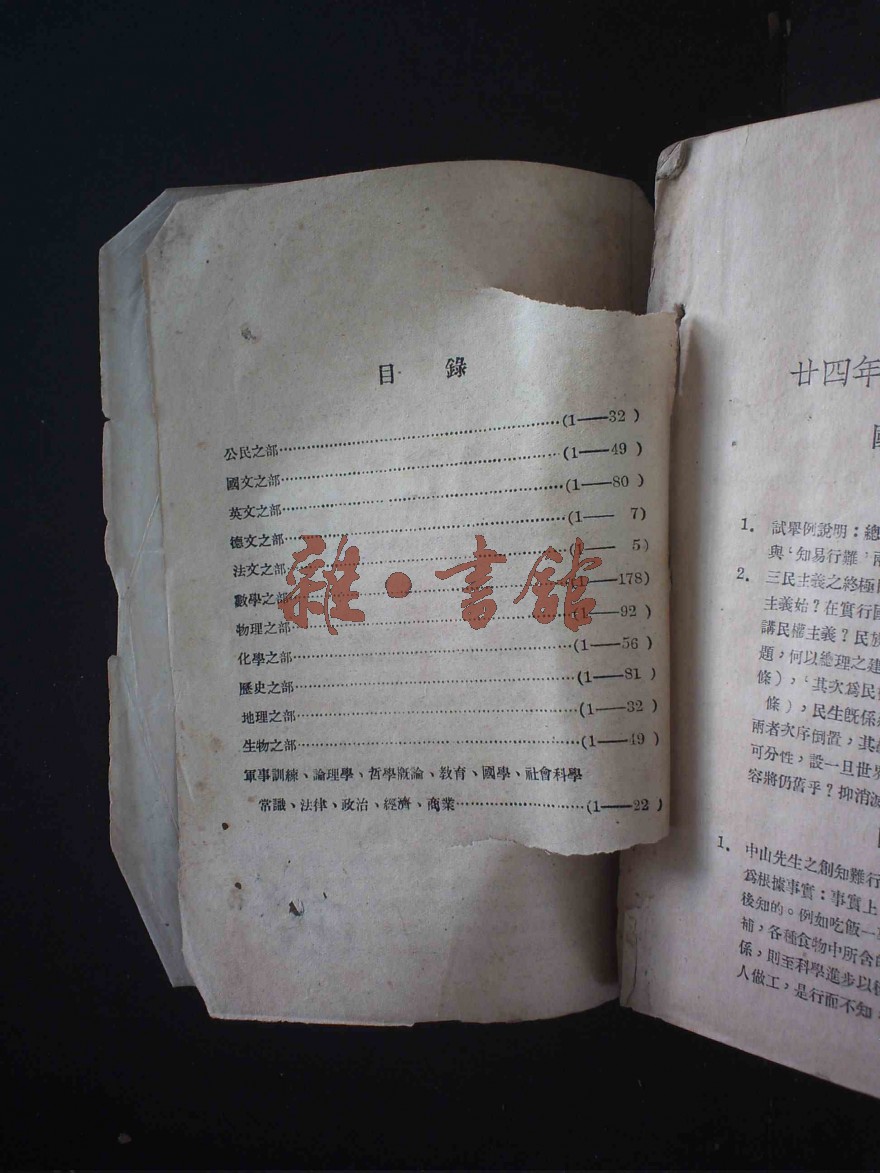 目 錄
公民之部……(1——32)
國文之部……(1——49)
英文之部……(1——80)
德文之部……(1——7)
法文之部……(1——5)
數學之部……(1——178)
物理之部……(1——92)
化學之部……(1——56)
歷史之部……(1——81)
地理之部……(1——32)
生物之部……(1——49)
軍事訓練、論理學、哲學概論、教育、國學、社會科學
常識、法律、政治、經濟、商業……(1——22)
雜·書館
廿四年
1. 試舉例說明:總
與‘知易行難’
2. 三民主義之終極
主義始?在實行
講民權主義?民族
題,何以總理之建
條),‘其次為民
條),民生既係
兩者次序倒置,其
可分性,設一旦世界
容將仍舊乎?抑消滅
1. 中山先生之創知難行
為根據事實:事實上
後知的。例如吃飯一
補,各種食物中所含的
係,則至科學進步以
人做工,是行而不知